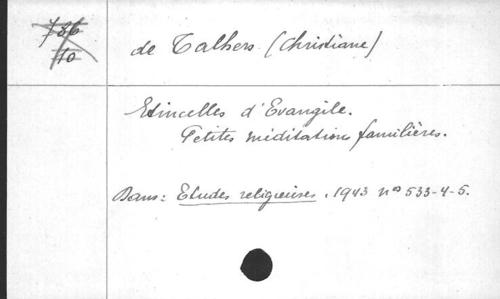 786
10
de Talhers (Christiane)
Etincelles d'Evangile.
Petites méditation familières.
Dans: Etudes religieuses. 1943 nos 533-4-5.